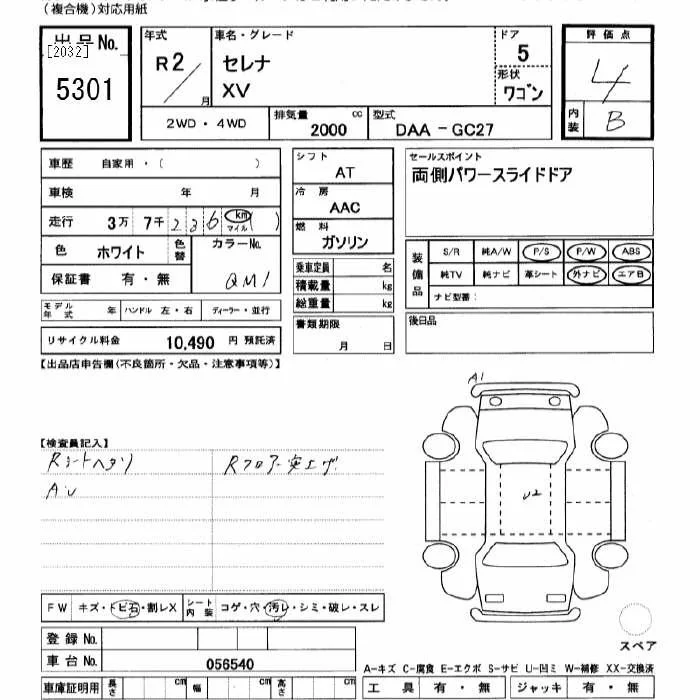 （複合機）対応用紙
出品No.
[2032]
5301
年式
R2/月
車名・グレード
セレナ
XV
ドア
5
形状
ワゴン
評価点
4
内装
B
2WD・4WD
排気量 cc
2000
型式
DAA－GC27
車歴 自家用・（ ）
車検 年 月
走行 3万 7千 236 km マイル （ ）
色 ホワイト 色替 カラーNo.
QM1
保証書 有・無
モデル年式 年 ハンドル 左・右 ディーラー・並行
リサイクル料金 10,490 円 預託済
シフト
AT
冷房
AAC
燃料
ガソリン
乗車定員 名
積載量 kg
総重量 kg
書類期限
月 日
セールスポイント
両側パワースライドドア
装備品
S/R 純A/W P/S P/W ABS
純TV 純ナビ 革シート 外ナビ エアB
ナビ型番：
後日品
【出品店申告欄(不良箇所・欠品・注意事項等)】
【検査員記入】
Rシートヘタリ
Rフロアー突上げ
A・U
A1
U2
FW キズ・トビ石・割レX シート内装 コゲ・穴・汚レ・シミ・破レ・スレ
登録No.
車台No. 056540
車庫証明用 長さ cm 幅 cm 高さ cm
スペア
A-キズ C-腐食 E-エクボ S-サビ U-凹ミ W-補修 XX-交換済
工具 有・無 ジャッキ 有・無